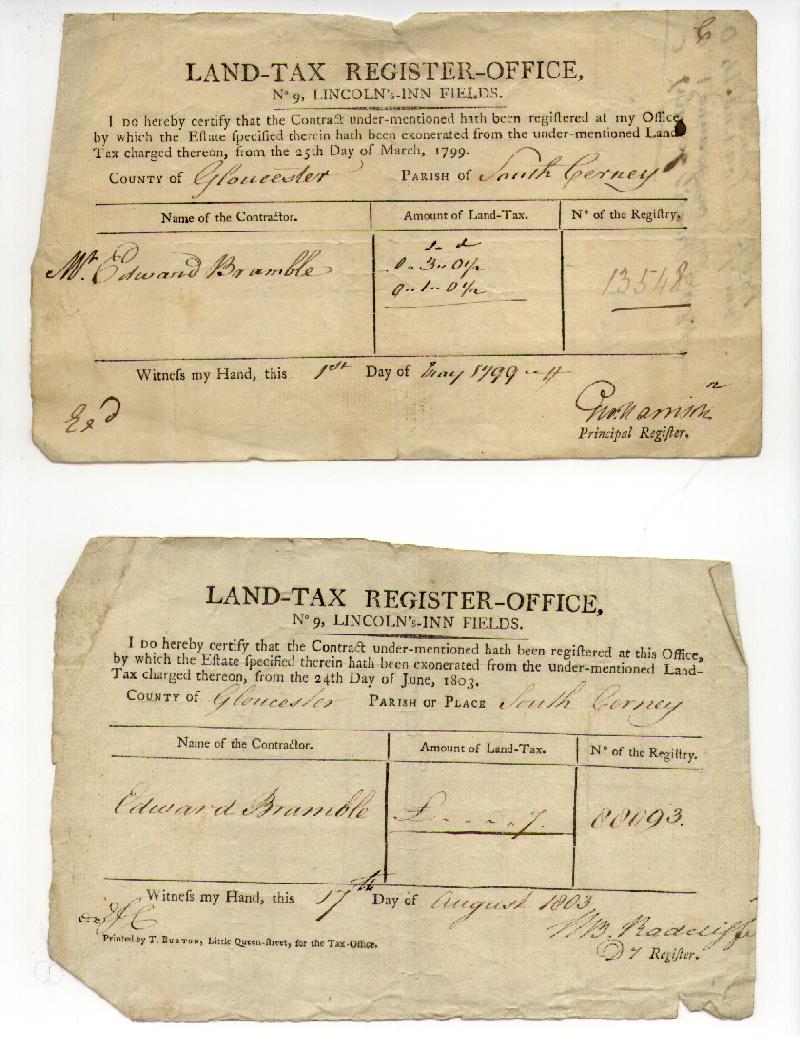 LAND-TAX REGISTER-OFFICE,
Nº 9, LINCOLN's-INN FIELDS.
I DO hereby certify that the Contract under-mentioned hath been registered at my Office,
by which the Eſtate ſpecified therein hath been exonerated from the under-mentioned Land
Tax charged thereon, from the 25th Day of March, 1799.
COUNTY OF Gloucester PARISH OF South Cerney
Name of the Contractor. Amount of Land-Tax. Nº of the Regiſtry.
s d
Mr. Edward Bramble 0 .. 3 .. 0½ 13548
0 .. 1 .. 0½
Witneſs my Hand, this 1st Day of May 1799
Exd
Principal Regiſter.
LAND-TAX REGISTER-OFFICE,
Nº 9, LINCOLN's-INN FIELDS.
I DO hereby certify that the Contract under-mentioned hath been regiſtered at this Office,
by which the Eſtate ſpecified therein hath been exonerated from the under-mentioned Land-
Tax charged thereon, from the 24th Day of June, 1803.
COUNTY OF Gloucester PARISH OR PLACE South Cerney
Name of the Contractor. Amount of Land-Tax. Nº of the Regiſtry.
Edward Bramble £ . . . . 7. 88093.
Witneſs my Hand, this 17th Day of August 1803
Radcliffe
Printed by T. BURTON, Little Queen-ſtreet, for the Tax-Office.
Dy Regiſter.